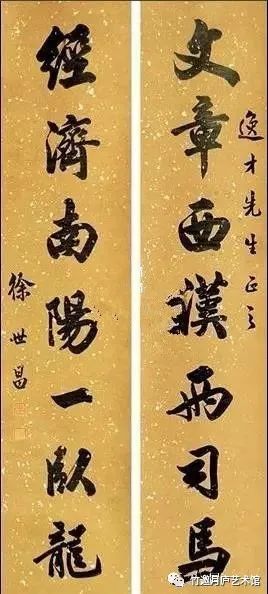 逸才先生正之
文章西漢兩司馬
經濟南陽一臥龍
徐世昌
竹邀月庐艺术馆